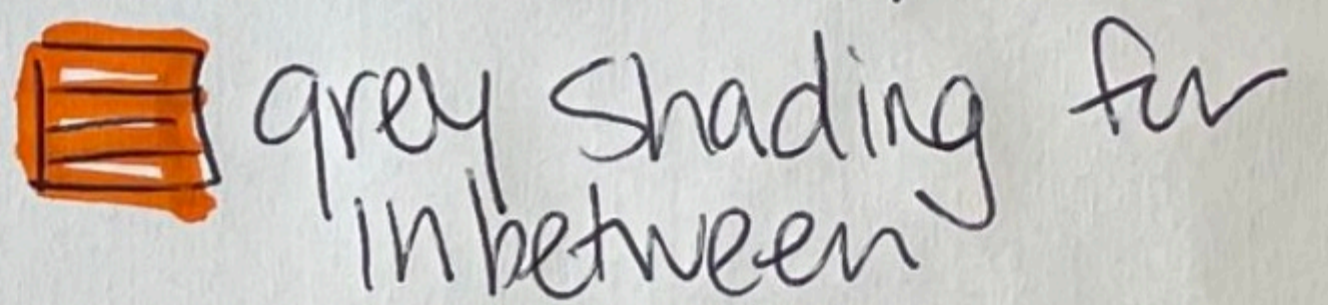 grey shading for
inbetween